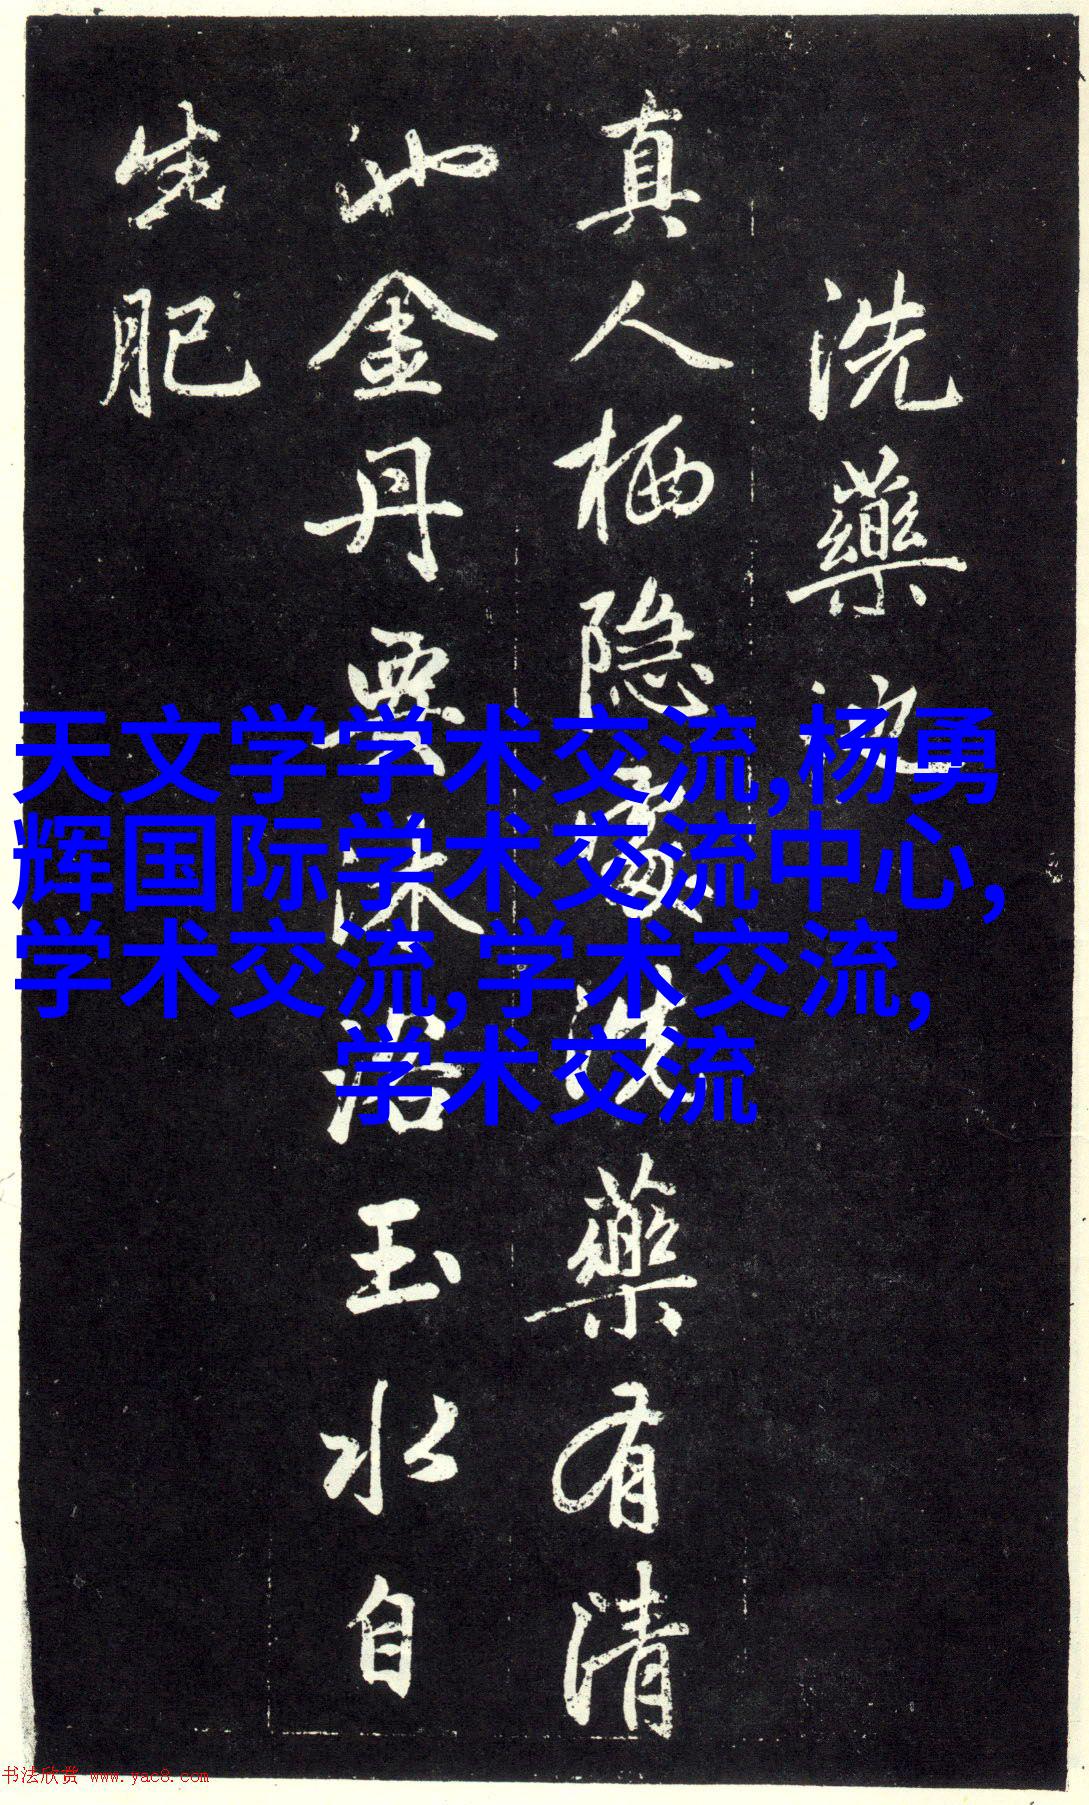 洗藥池
真人栖隐處洗藥有清
池金丹要沐浴玉水自
生肥
天文学学术交流,杨勇
辉国际学术交流中心,
学术交流,学术交流,
学术交流
书法欣赏 www.yac8.com